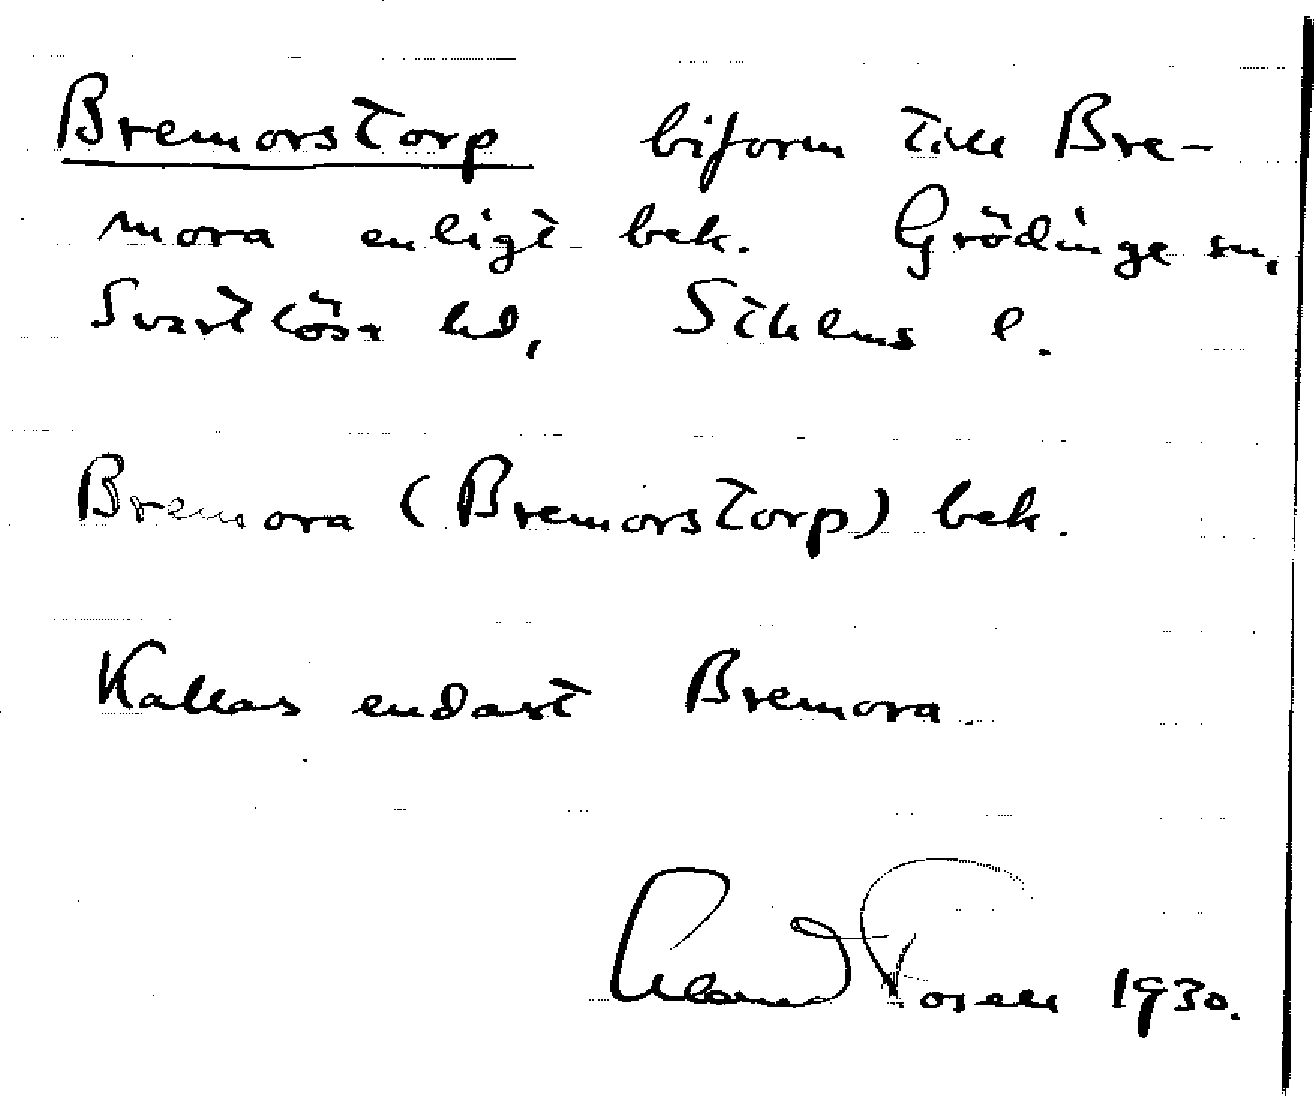 Bremorstorp biform till Bre-
mora enligt bek. Grödinge sn,
Svartlösa hd, Sthlms l.
Bremora (Bremorstorp) bek.
Kallas endast Bremora.
1930.